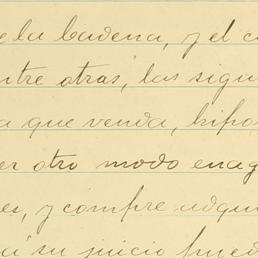 de la Cadena, y el c
ntre otras, las sigu
a que venda, hipo
er otro modo enag
es, y compre adqui
a su juicio pued